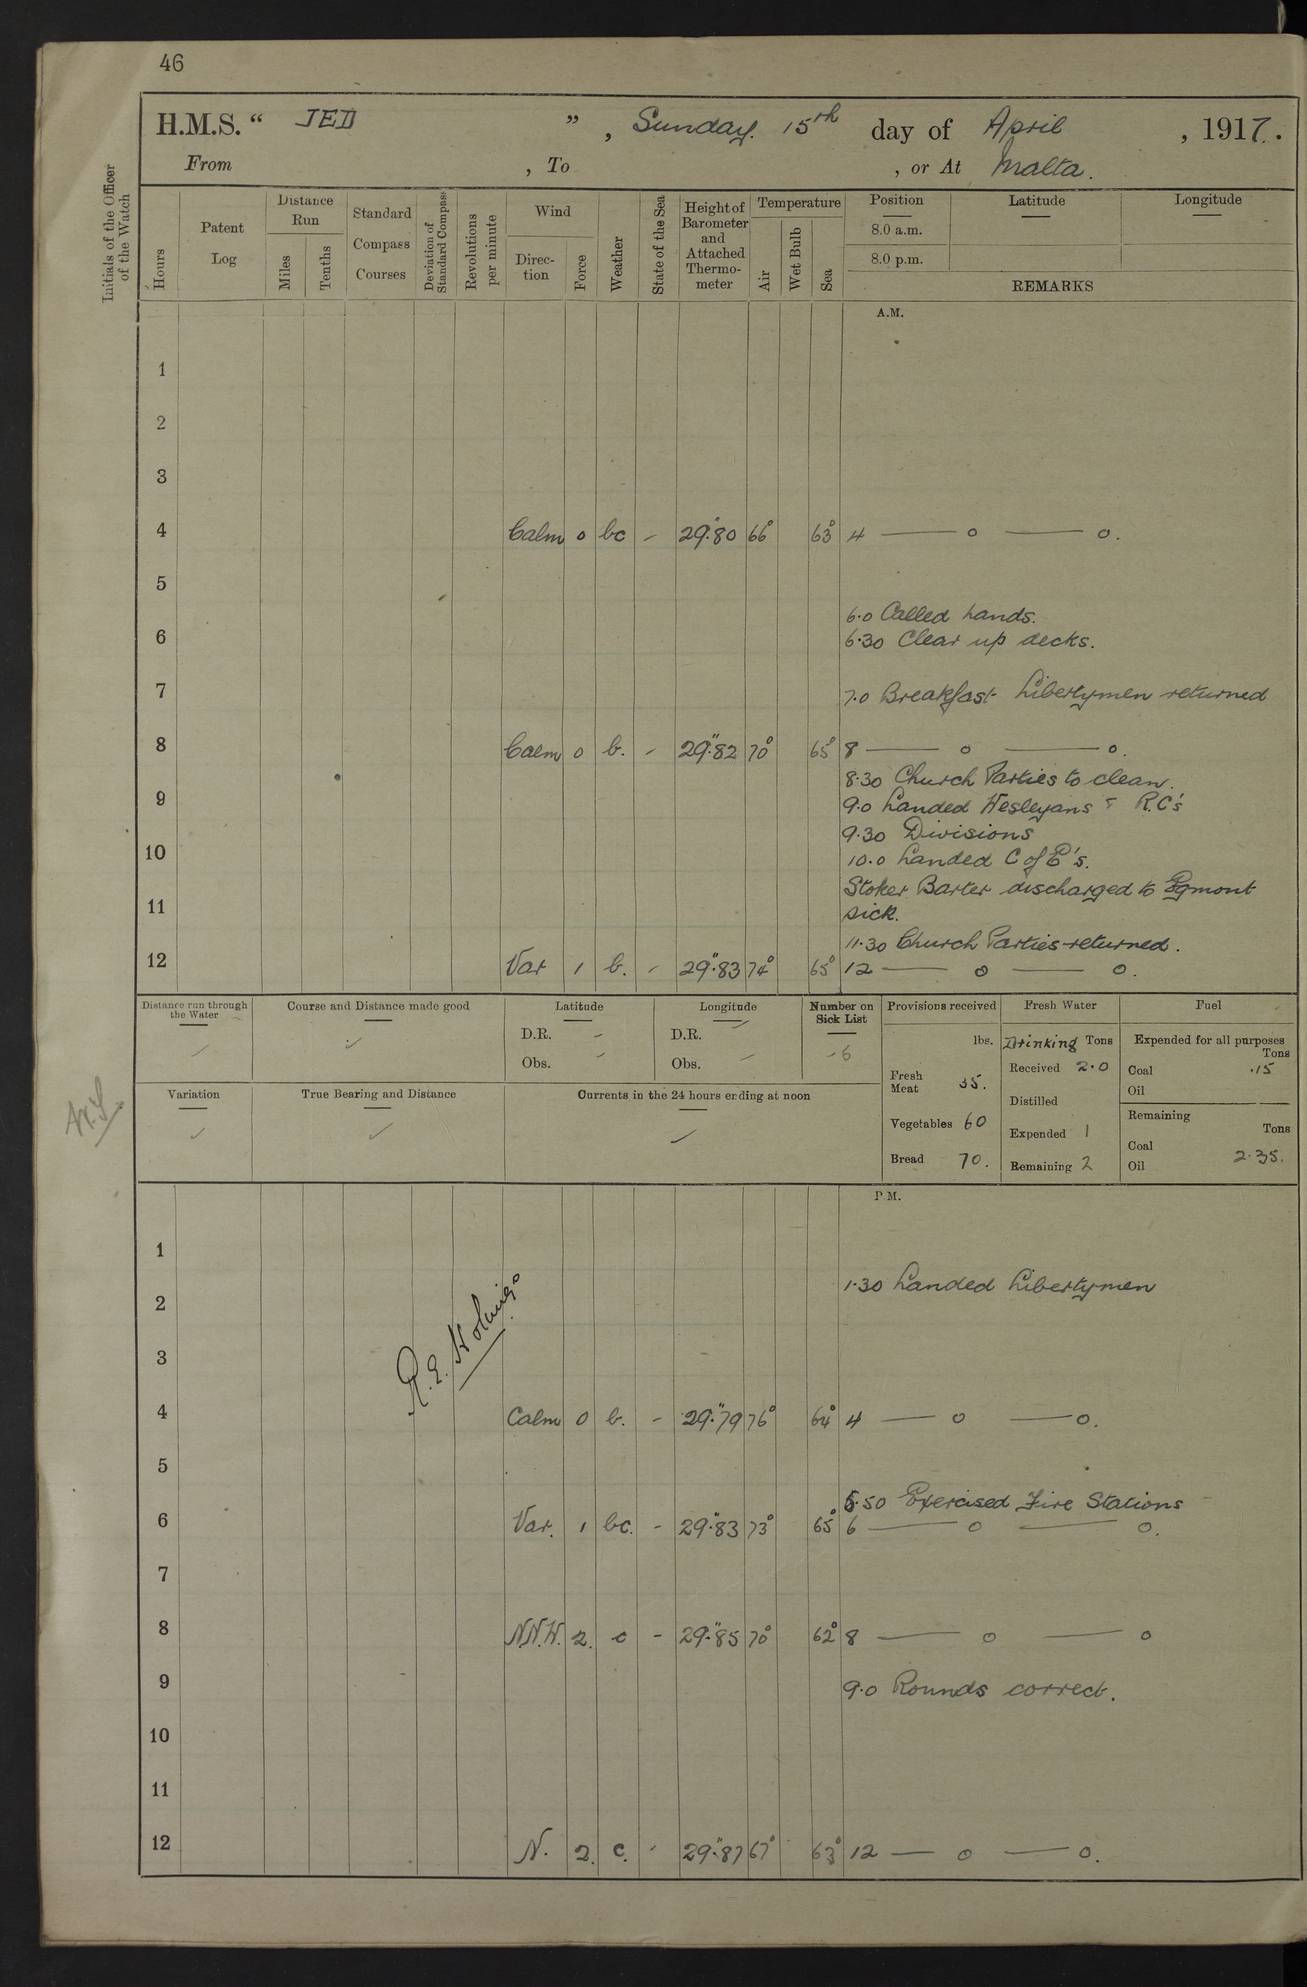 46
H.M.S. “ JED ” , Sunday. 15th day of April , 1917.
From , To , or At Malta.
Initials of the Officer of the Watch
Hours
Patent Log
Distance Run
Miles
Tenths
Standard Compass Courses
Deviation of Standard Compass
Revolutions per minute
Wind
Direction
Force
Weather
State of the Sea
Height of Barometer and Attached Thermometer
Temperature
Air
Wet Bulb
Sea
Position
8.0 a.m.
8.0 p.m.
Latitude
Longitude
REMARKS
A.M.
1
2
3
4 Calm 0 bc - 29.80 66° 63° 4 — o — o.
5
6.0 Called hands.
6
6.30 Clear up decks.
7
7.0 Breakfast Libertymen returned
8 Calm 0 b. - 29."82 70° 65° 8 — o — o.
8.30 Church Parties to clean.
9
9.0 Landed Wesleyans & R.C's
9.30 Divisions
10
10.0 Landed C of E's.
Stoker Barter discharged to Egmont
11
sick.
11.30 Church Parties returned.
12 Var 1 b. - 29."83 74° 65° 12 — o — o.
Distance run through the Water
Course and Distance made good
Latitude
D.R. -
Obs. -
Longitude
D.R. -
Obs. -
Number on Sick List
- 6
Provisions received
lbs.
Fresh Meat 35.
Vegetables 60
Bread 70.
Fresh Water
Drinking Tons
Received 2.0
Distilled
Expended 1
Remaining 2
Fuel
Expended for all purposes
Tons
Coal .15
Oil
Remaining
Tons
Coal
Oil 2.35.
Variation
True Bearing and Distance
Currents in the 24 hours ending at noon
P.M.
1
1.30 Landed Libertymen
2
3
4 Calm 0 b. - 29."79 76° 64° 4 — o — o.
5
5.50 Exercised Fire Stations
6 Var. 1 bc. - 29."83 73° 65° 6 — o — o.
7
8 N.N.W. 2. c - 29."85 70° 62° 8 — o — o
9
9.0 Rounds correct.
10
11
12 N. 2. c. - 29."87 67° 63° 12 — o — o.